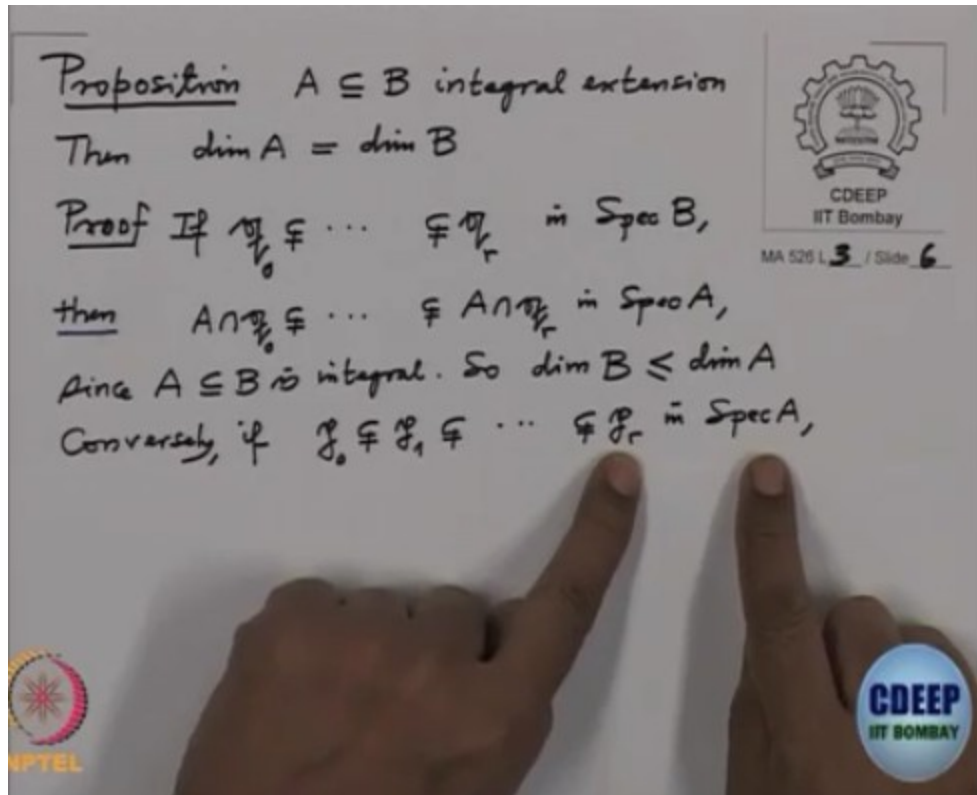 Proposition A ⊆ B integral extension
Then dim A = dim B
Proof If 𝔮₀ ⊊ ··· ⊊ 𝔮ᵣ in Spec B,
then A∩𝔮₀ ⊊ ··· ⊊ A∩𝔮ᵣ in Spec A,
since A ⊆ B is integral. So dim B ≤ dim A
Conversely, if 𝔭₀ ⊊ 𝔭₁ ⊊ ··· ⊊ 𝔭ᵣ in Spec A,
CDEEP
IIT Bombay
MA 526 L 3 / Slide 6
NPTEL
CDEEP
IIT BOMBAY